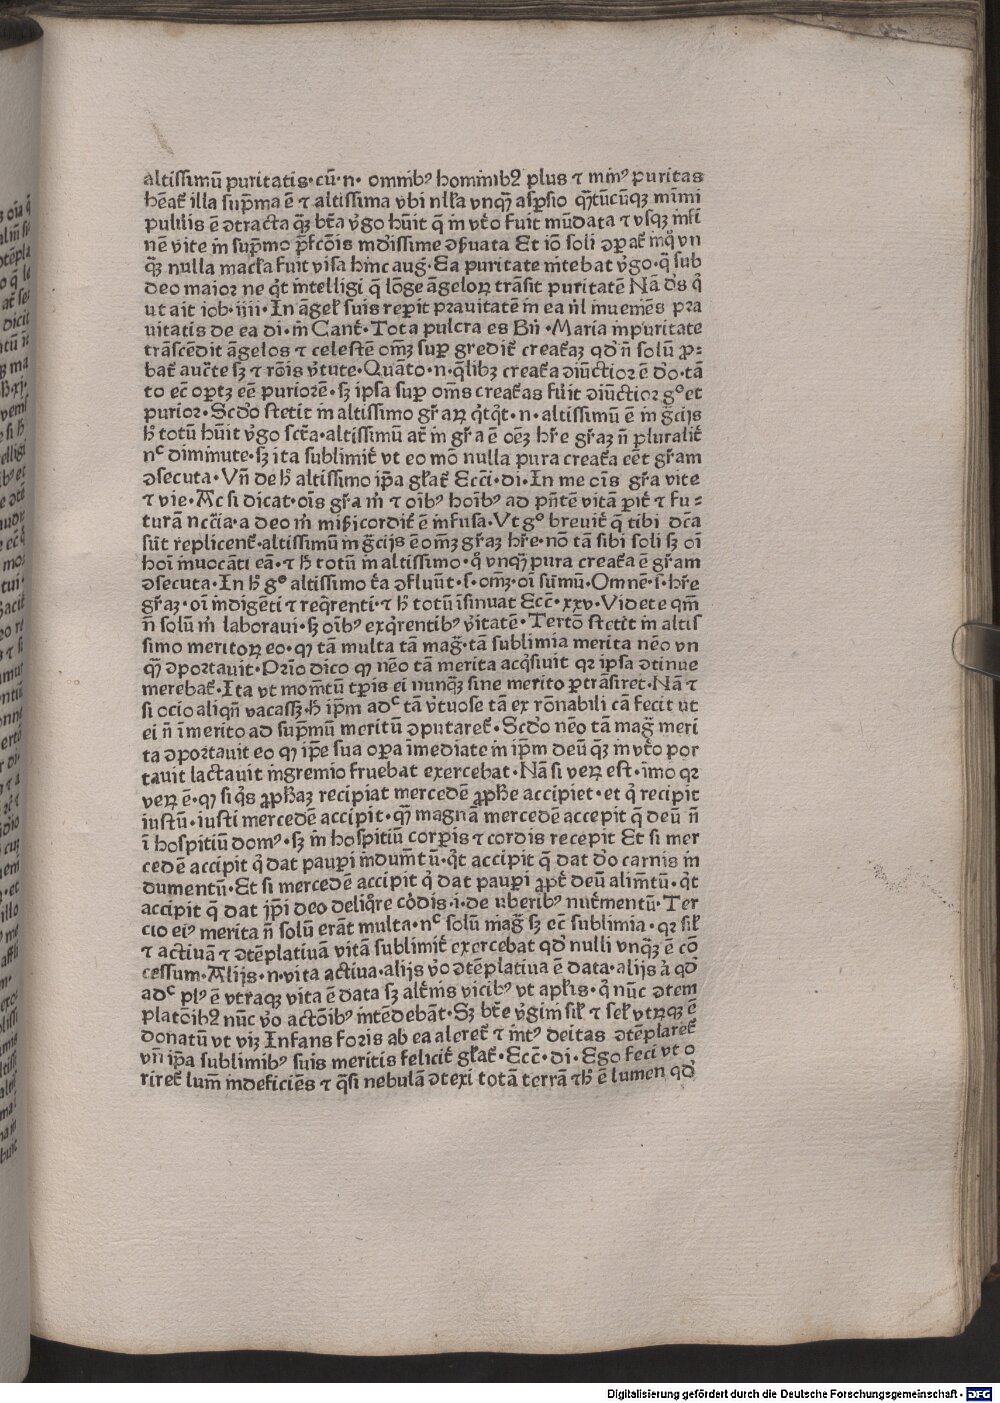 altissimū puritatis·cū·n· omnibꝰ hominibꝫ plus ⁊ minꝰ puritas
hēat᷑ illa sup̄ma ē ⁊ altissima vbi nll̄a vnqꝫ aspersio qͣtūcūqꝫ minimi
puluis ē ꝯtracta qꝫ btā v̓go hūit q̄ in vt̓o fuit mūdata ⁊ vsqꝫ in fi
nē vite in sup̄mo pf̄cōis mūdissime ꝯseruata Et iō soli ꝯparat᷑ in qͦ vn
qꝫ nulla macl̄a fuit visa hinc aug̓· Ea puritate nitebat v̓go·qͣ sub
deo maior ne q̓t intelligi q̄ lōge āgeloꝝ trāsit puritatē Nā dꝰs qͥ
ut ait iob·iiii· In āgel̓ suis reperit prauitatē in ea nil̓ inueniēs pra
uitatis de ea di·in Cant̓·Tota pulcra es Bn̄·Maria in puritate
trāscēdit āgelos ⁊ celestē om̄ꝫ sup gredit᷑ creat᷑aꝫ qd̓ n̄ solū ꝓ-
bat᷑ auct̄e sꝫ ⁊ rōis v̓tute·Quāto·n·qͥlibꝫ creat᷑a ꝯiūctior ē do·tā
to eē oportꝫ eē puriorē·sꝫ ipsa sup om̄s creat᷑as fuit ꝯiūctior gͦ et
purior·Scd̓o stetit in altissimo gr̄aꝝ qͥtqͥt·n·altissimū ē in gr̄cijs
h̓ totū hūit v̓go sct̄a·altissimū at̄ in gr̄a ē oēꝫ hr̄e gr̄aꝫ n̄ pluralit̓
nᶜ diminute·sꝫ ita sublimit̓ vt eo mō nulla pura creat᷑a eēt gr̄am
ꝯsecuta·Vn̄ de h̓ altissimo ip̄a gl̄at᷑ Ecci·di·In me oīs gr̄a vite
⁊ vie·Ac si dicat·oīs gr̄a in ⁊ oībꝰ hoībꝰ ad pn̄tē vitā pit᷑ ⁊ fu-
turā nccīa·a deo in misericordit᷑ ē infusa·Vt gͦ breuit᷑ q̄ tibi dc̄a
sūt replicent᷑·altissimū in gr̄cijs ē om̄ꝫ gr̄aꝫ hr̄e·nō tā sibi soli sꝫ oī
hoī inuocāti eā·⁊ h̓ totū in altissimo·qͦ vnqꝫ pura creat᷑a ē gr̄am
ꝯsecuta·In h̓ gͦ altissimo t̄a ꝯfluūt·s·om̄ꝫ·oī sūmū·Omnē·s·hr̄e
gr̄aꝫ·oī indigēti ⁊ reqͥrenti·⁊ h̓ totū īsinuat Ecc̄·xxv·Videte qm̄
n̄ solū in laboraui·sꝫ oībꝰ exqͥrentibꝰ v̓itatē·Tertō stetit in altis
simo meritoꝝ eo·qꝫ tā multa tā mag̓·tā sublimia merita nēo vn
qꝫ ꝯportauit·Prio dico qꝫ nēo tā merita acqͥsiuit qꝛ ipsa ꝯtinue
merebat᷑·Ita vt momētū tꝑis ei nunqꝫ sine merito ꝑtrāsiret·Nā ⁊
si ocio aliqn̄ vacassꝫ·h̓ ip̄m adᶜ tā v̓tuose tā ex rōnabili cā fecit ut
ei n̄ īmerito ad sup̄mū meritū ꝯputaret᷑·Scd̓o nēo tā mag̓ meri
ta ꝯportauit eo qꝫ ip̄e sua oꝑa īmediate in ip̄m deū qꝫ in vt̓o por
tauit lactauit in gremio fruebat exercebat·Nā si veꝝ est·īmo qꝛ
veꝝ ē·qꝫ si qͥs ꝓphaꝫ recipiat mercedē ꝓphe accipiet·et qͥ recipit
iustū·iusti mercedē accipit·qꝫ magnā mercedē accepit q̄ deū n̄
ī hospitiū domꝰ·sꝫ in hospitiū corꝑis ⁊ cordis recepit Et si mer
cedē accipit qͥ dat pauꝑi indumētū·q̓t accipit q̄ dat d̓o carnis in
dumentū·Et si mercedē accipit qͥ dat pauꝑi ꝓpt̓ deū alimētū·q̓t
accipit q̄ dat ip̄i deo deliqͣre cōdis·i·de uberibꝰ nutrimentū·Ter
cio eiꝰ merita n̄ solū erāt multa·nᶜ solū mag̓ sꝫ ec̄ sublimia·qꝛ sil̓
⁊ actiuā ⁊ ꝯtēplatiuā vitā sublimit᷑ exercebat qd̓ nulli vnqꝫ ē cō
cessum·Alijs·n·vita actiua·alijs v̓o ꝯtēplatiua ē data·alijs ā qd̓
adᶜ plꝰ ē vtraqꝫ vita ē data sꝫ alt̓nis vicibꝰ vt apl̄is·qͥ nūc ꝯtem
platōibꝫ nūc v̓o actōibꝰ intēdebāt·Sꝫ bt̄e v̓gini sil̓ ⁊ sel̓ vtrūqꝫ ē
donatū vt viꝫ Infans foris ab ea aleret᷑ ⁊ intꝰ deitas ꝯtēplaret᷑
vn̄ ip̄a sublimibꝰ suis meritis felicit᷑ gl̄at᷑·Ecc̄·di·Ego feci vt o
riret᷑ lum̄ indeficiēs ⁊ qͣsi nebulā ꝯtexi totā terrā ⁊h̓ ē lumen qd̓
Digitalisierung gefördert durch die Deutsche Forschungsgemeinschaft - DFG